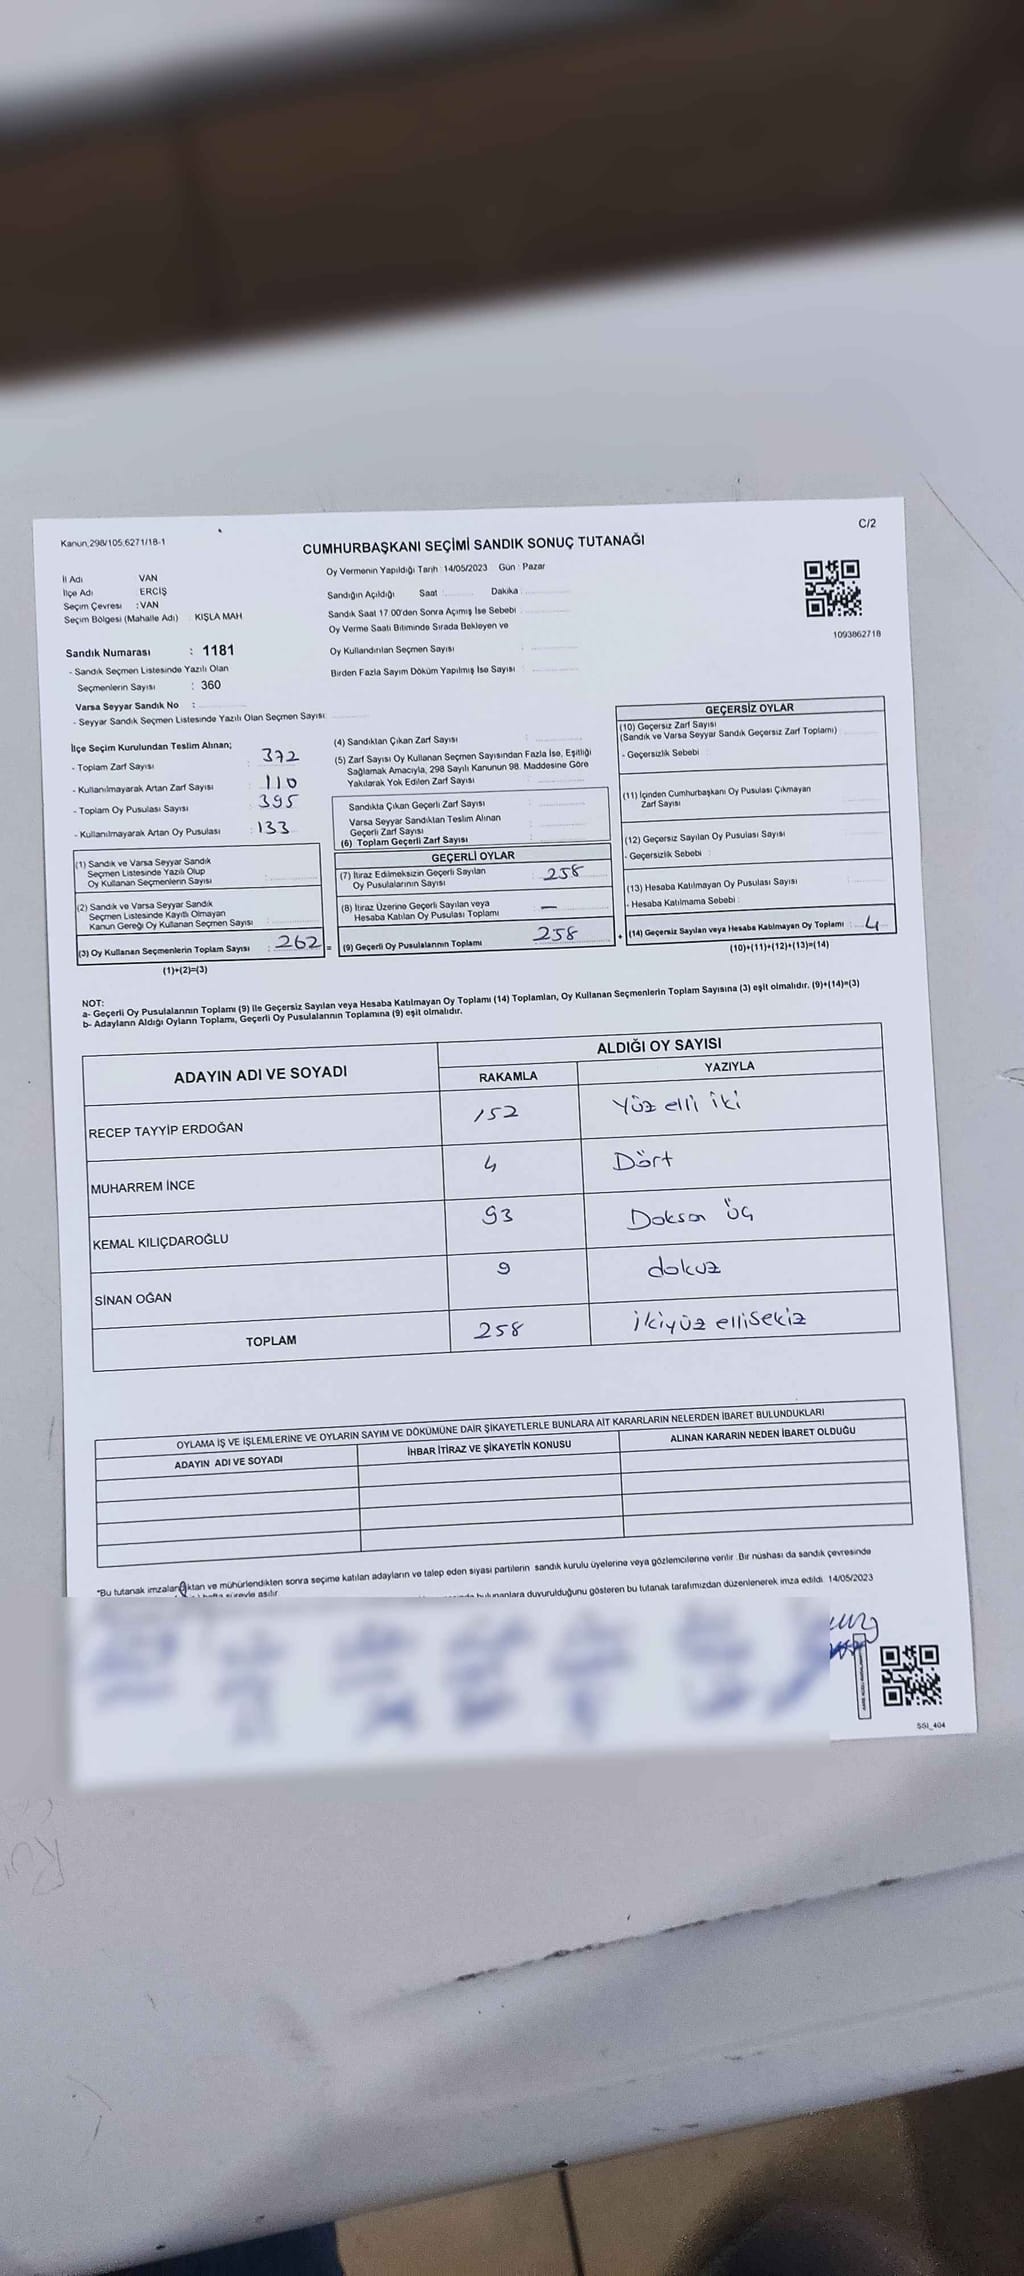 Kanun,298/105,6271/18-1
C/2
CUMHURBAŞKANI SEÇİMİ SANDIK SONUÇ TUTANAĞI
İl Adı VAN
İlçe Adı ERCİŞ
Seçim Çevresi : VAN
Seçim Bölgesi (Mahalle Adı) : KIŞLA MAH
Sandık Numarası : 1181
- Sandık Seçmen Listesinde Yazılı Olan
Seçmenlerin Sayısı : 360
Varsa Seyyar Sandık No :
- Seyyar Sandık Seçmen Listesinde Yazılı Olan Seçmen Sayısı
Oy Vermenin Yapıldığı Tarih : 14/05/2023 Gün : Pazar
Sandığın Açıldığı Saat Dakika
Sandık Saat 17 00'den Sonra Açımış İse Sebebi
Oy Verme Saati Bitiminde Sırada Bekleyen ve
Oy Kullandırılan Seçmen Sayısı
Birden Fazla Sayım Döküm Yapılmış İse Sayısı
1093862718
İlçe Seçim Kurulundan Teslim Alınan;
- Toplam Zarf Sayısı : 372
- Kullanılmayarak Artan Zarf Sayısı : 110
- Toplam Oy Pusulası Sayısı : 395
- Kullanılmayarak Artan Oy Pusulası : 133
(1) Sandık ve Varsa Seyyar Sandık
Seçmen Listesinde Yazılı Olup
Oy Kullanan Seçmenlerin Sayısı
(2) Sandık ve Varsa Seyyar Sandık
Seçmen Listesinde Kayıtlı Olmayan
Kanun Gereği Oy Kullanan Seçmen Sayısı
(3) Oy Kullanan Seçmenlerin Toplam Sayısı : 262 =
(1)+(2)=(3)
(4) Sandıktan Çıkan Zarf Sayısı
(5) Zarf Sayısı Oy Kullanan Seçmen Sayısından Fazla İse, Eşitliği
Sağlamak Amacıyla, 298 Sayılı Kanunun 98. Maddesine Göre
Yakılarak Yok Edilen Zarf Sayısı
Sandıkta Çıkan Geçerli Zarf Sayısı
Varsa Seyyar Sandıktan Teslim Alınan
Geçerli Zarf Sayısı
(6) Toplam Geçerli Zarf Sayısı
GEÇERLİ OYLAR
(7) İtiraz Edilmeksizin Geçerli Sayılan
Oy Pusulalarının Sayısı : 258
(8) İtiraz Üzerine Geçerli Sayılan veya
Hesaba Katılan Oy Pusulası Toplamı : —
(9) Geçerli Oy Pusulalarının Toplamı 258 +
GEÇERSİZ OYLAR
(10) Geçersiz Zarf Sayısı
(Sandık ve Varsa Seyyar Sandık Geçersiz Zarf Toplamı)
- Geçersizlik Sebebi
(11) İçinden Cumhurbaşkanı Oy Pusulası Çıkmayan
Zarf Sayısı
(12) Geçersiz Sayılan Oy Pusulası Sayısı
- Geçersizlik Sebebi :
(13) Hesaba Katılmayan Oy Pusulası Sayısı
- Hesaba Katılmama Sebebi :
(14) Geçersiz Sayılan veya Hesaba Katılmayan Oy Toplamı : 4
(10)+(11)+(12)+(13)=(14)
NOT:
a- Geçerli Oy Pusulalarının Toplamı (9) ile Geçersiz Sayılan veya Hesaba Katılmayan Oy Toplamı (14) Toplamları, Oy Kullanan Seçmenlerin Toplam Sayısına (3) eşit olmalıdır. (9)+(14)=(3)
b- Adayların Aldığı Oyların Toplamı, Geçerli Oy Pusulalarının Toplamına (9) eşit olmalıdır.
ADAYIN ADI VE SOYADI
ALDIĞI OY SAYISI
RAKAMLA YAZIYLA
RECEP TAYYİP ERDOĞAN 152 Yüz elli iki
MUHARREM İNCE 4 Dört
KEMAL KILIÇDAROĞLU 93 Doksan üç
SİNAN OĞAN 9 dokuz
TOPLAM 258 ikiyüz ellisekiz
OYLAMA İŞ VE İŞLEMLERİNE VE OYLARIN SAYIM VE DÖKÜMÜNE DAİR ŞİKAYETLERLE BUNLARA AİT KARARLARIN NELERDEN İBARET BULUNDUKLARI
ADAYIN ADI VE SOYADI İHBAR İTİRAZ VE ŞİKAYETİN KONUSU ALINAN KARARIN NEDEN İBARET OLDUĞU
"Bu tutanak imzalandıktan ve mühürlendikten sonra seçime katılan adayların ve talep eden siyasi partilerin sandık kurulu üyelerine veya gözlemcilerine verilir. Bir nüshası da sandık çevresinde
hafta süreyle asılır
bulunanlara duyurulduğunu gösteren bu tutanak tarafımızdan düzenlenerek imza edildi. 14/05/2023
SSI_404